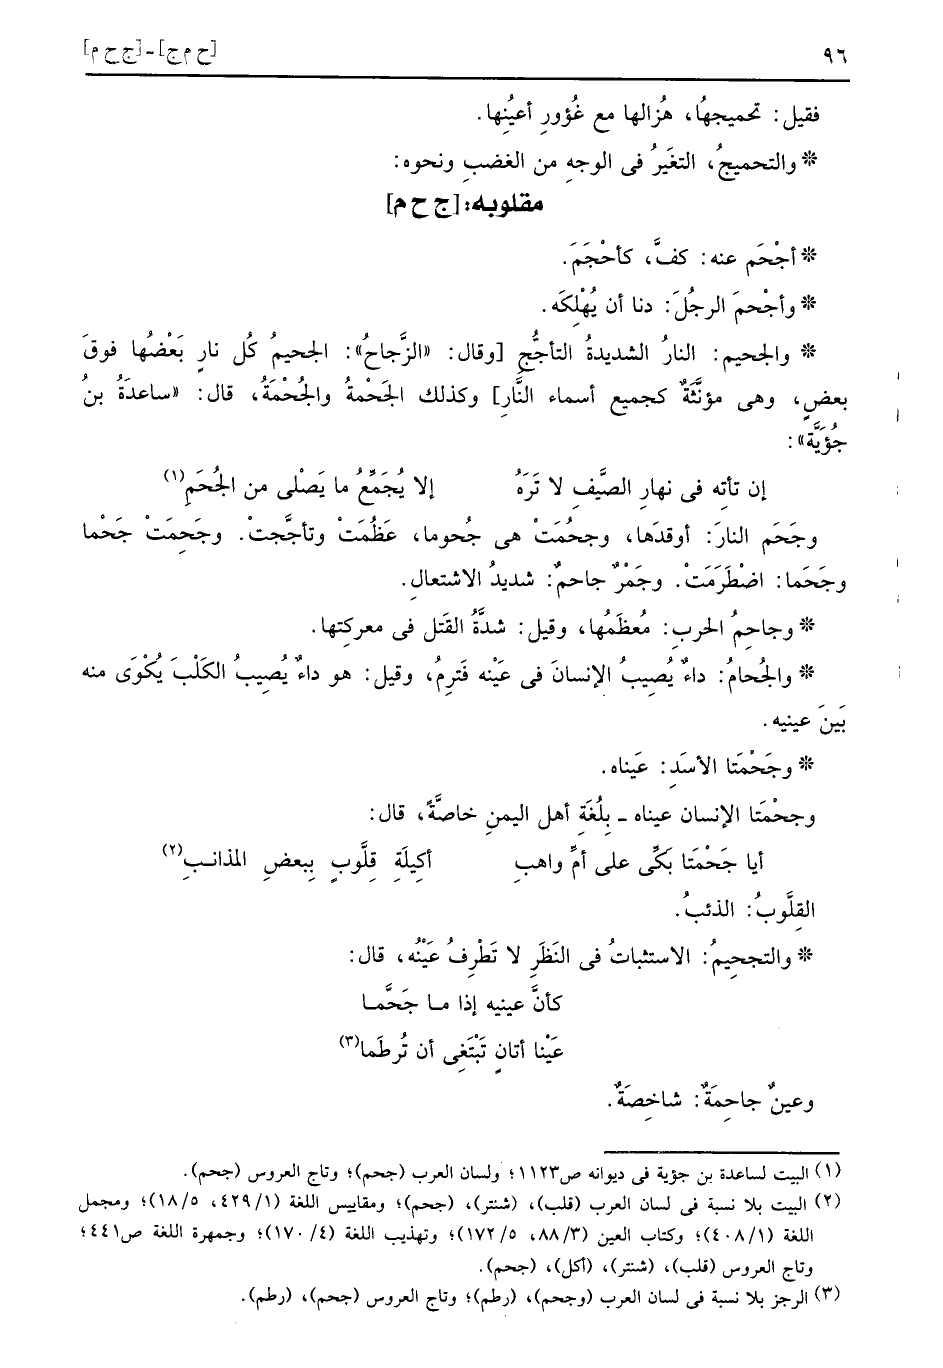 ٩٦ [ح م ج] - [ج ح م]
فقيل: تحميجهُا، هُزالها مع غُؤورِ أعيُنِها.
* والتحميجُ، التغَيرُ فى الوجهِ من الغضبِ ونحوِه:
مقلوبه: [ج ح م]
* أجْحَم عنه: كفَّ، كأحْجَمَ.
* وأجْحمَ الرجلَُ: دنا أن يُهْلِكَه.
* والجحيم: النارُ الشديدةُ التأجّجِ [وقال: «الزَّجاحُ»: الجحيمُ كُل نارٍ بَعْضُها فوقَ
بعضٍ، وهى مؤنَّثَةٌ كجميعِ أسماء النَّارِ] وكذلك الجَحْمةُ والجُحْمَةُ، قال: «ساعدَةُ بنُ
جُؤيَّة»:
إن تأته فى نهارِ الصَّيفِ لا تَرَهُ إلا يُجَمِّعُ ما يَصْلى من الجُحَمِ(١)
وجَحَم النارَ: أوقدَها، وجحُمَتْ هى جُحوما، عَظُمَتْ وتأجَّجتْ. وجَحِمَتْ جَحْما
وجَحَما: اضْطَرَمَتْ. وجَمْرٌ جاحمٌ: شديدُ الاشتعالِ.
* وجاحِمُ الحربِ: مُعظَمُها، وقيل: شدَّةُ القَتل فى معركتِها.
* والجُحامُ: داءٌ يُصِيبُ الإنسانَ فى عَيْنه فَترِمُ، وقيل: هو داءٌ يُصِيبُ الكَلْبَ يُكْوَى منه
بَينَ عينيه.
* وجَحْمَتا الأسَدِ: عَيناه.
وجحْمَتا الإنسان عيناه ـ بِلُغَةِ أهل اليمنِ خاصَّةً، قال:
أيا جَحْمَتا بَكِّى على أمِّ واهبِ أكيلَةِ قِلَّوبٍ ببعضِ المذانبِ(٢)
القِلَّوبُ: الذئبُ.
* والتجحيمُ: الاستثباتُ فى النَظَرِ لا تَطْرِفُ عَيْنُه، قال:
كأنَّ عينيه إذا مـا جَحَّمـا
عَيْنا أتانٍ تَبْتَغِى أن تُرطَما(٣)
وعينٌ جاحِمَةٌ: شاخِصَةٌ.
(١) البيت لساعدة بن جؤية فى ديوانه ص١١٢٣؛ ولسان العرب (جحم)؛ وتاج العروس (جحم).
(٢) البيت بلا نسبة فى لسان العرب (قلب)، (شنتر)، (جحم)؛ ومقاييس اللغة (٤٢٩/١، ١٨/٥)؛ ومجمل
اللغة (٤٠٨/١)؛ وكتاب العين (٨٨/٣، ١٧٢/٥)؛ وتهذيب اللغة (١٧٠/٤)؛ وجمهرة اللغة ص٤٤١؛
وتاج العروس (قلب)، (شنتر)، (أكل)، (جحم).
(٣) الرجز بلا نسبة فى لسان العرب (وجحم)، (رطم)؛ وتاج العروس (جحم)، (رطم).